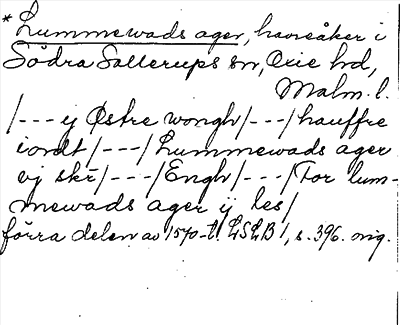 * Lummewads ager, havreåker i
Södra Sallerups sn, Oxie hd,
Malm. l.
/---ij Østre wongh/---/hauffre
iordt/---/Lummewads ager
vj skr̄/---/Engh/---/For lum-
mewads ager ij les/
förra delen av 1570-t. LSLB 1, s. 396. mg.